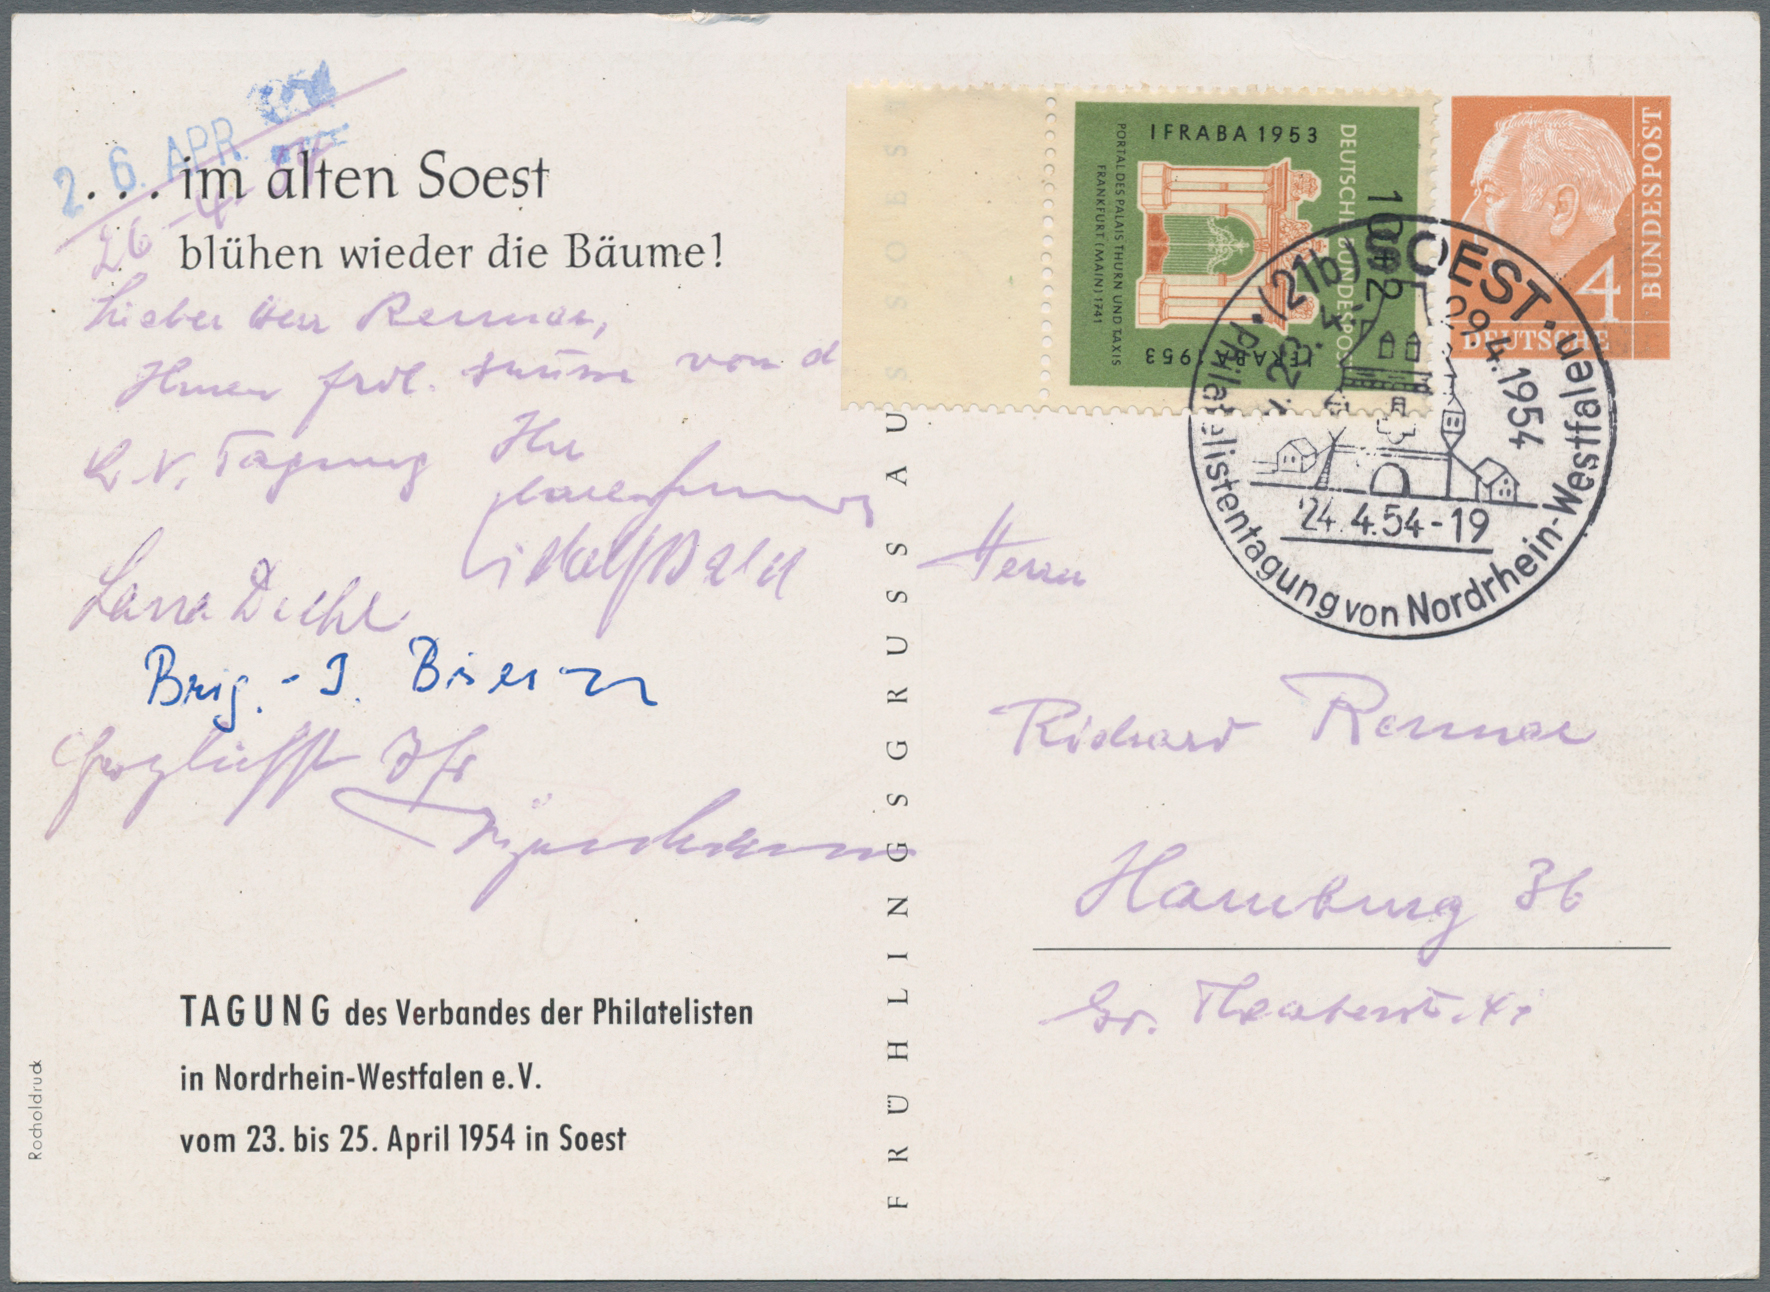 26. APR.
26-4
. . . im alten Soest
blühen wieder die Bäume!
Lieber Herr Renner,
Ihnen frdl. Grüsse von d
L.V. Tagung Ihr
Brig. - J.
Herzlichst Ihr
TAGUNG des Verbandes der Philatelisten
in Nordrhein-Westfalen e.V.
vom 23. bis 25. April 1954 in Soest
Rocholdruck
FRÜHLINGSGRUSS AUS SOEST
IFRABA 1953
DEUTSCHE BUNDESPOST
10+2
PORTAL DES PALAIS THURN UND TAXIS
FRANKFURT (MAIN) 1741
IFRABA 1953
4
DEUTSCHE
BUNDESPOST
(21b) SOEST
29.4.1954
24.4.54-19
Philatelistentagung von Nordrhein-Westfalen
Herrn
Richard Renner
Hamburg 36
Gr. Theaterstr.